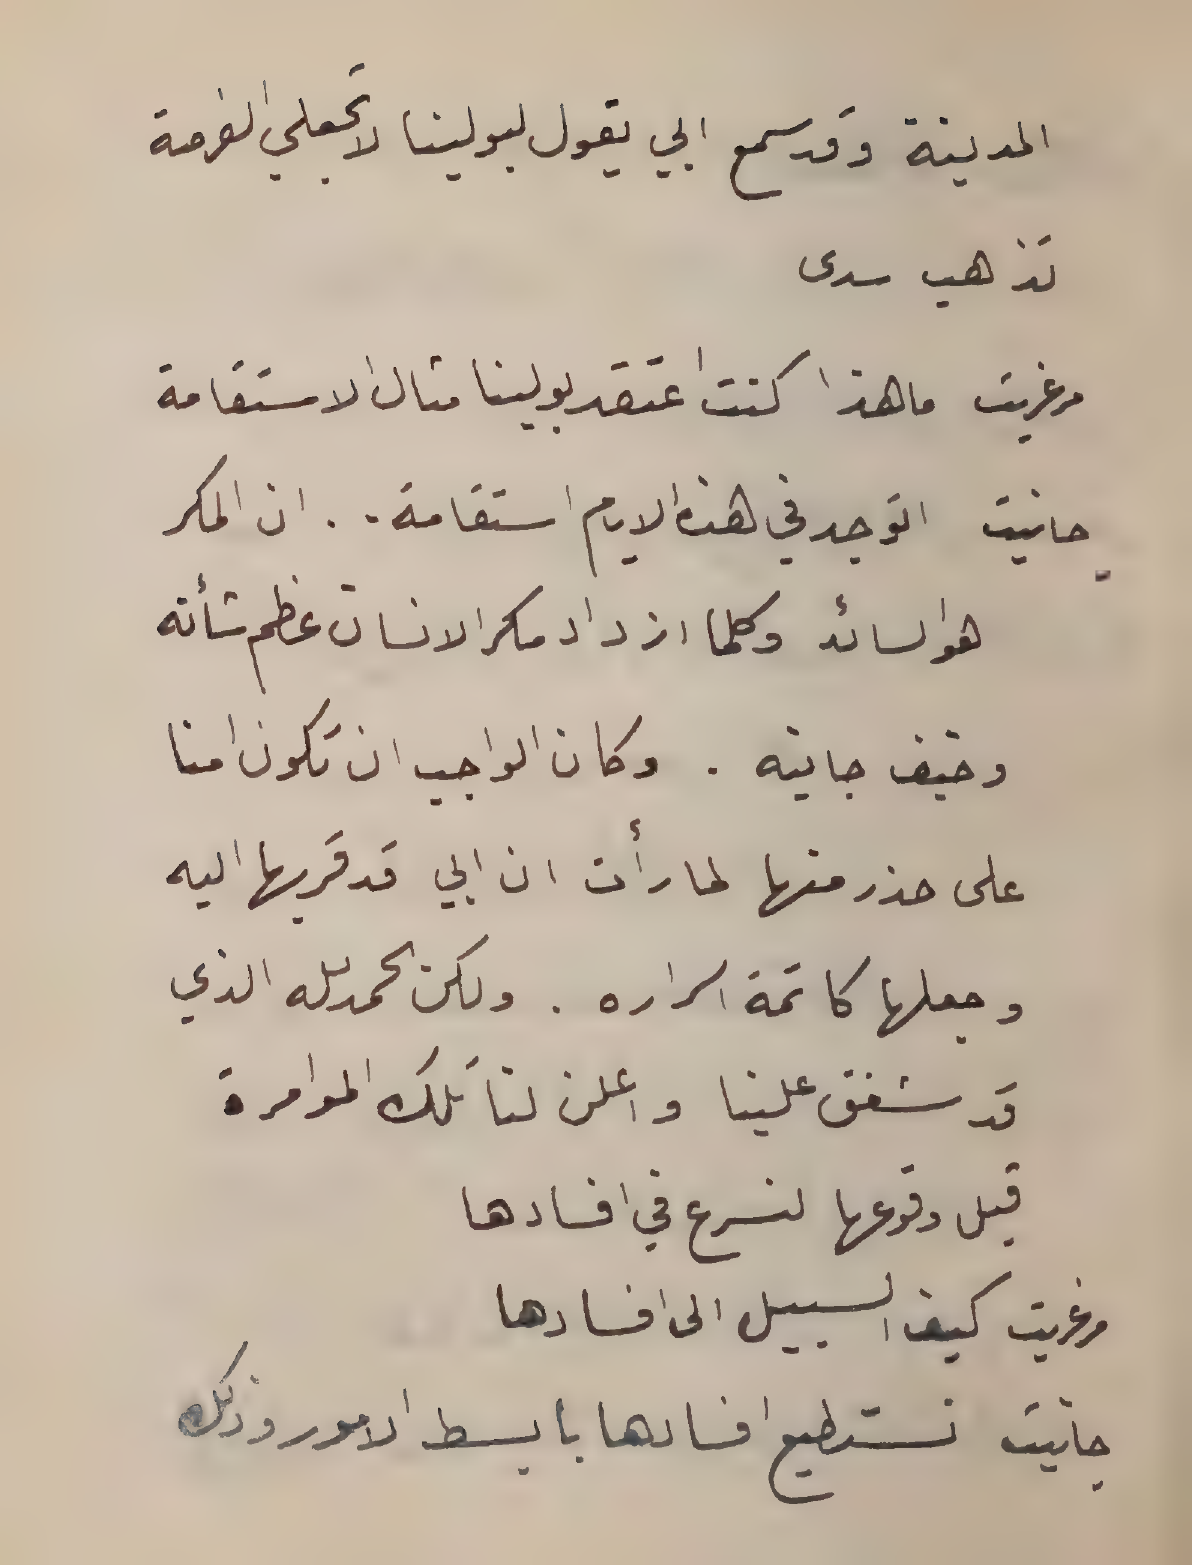 المدينة وقد سمع ابي يقول لبولينا لا تجعلي الفرصة
تذهب سدى
مرغريت ما هذا كنت اعتقد بولينا مثال الاستقامة
جانيت اتوجد في هذه الايام استقامة .. ان المكر
هو السائد وكلما ازداد مكر الانسان عظم شأنه
وخيف جانبه . وكان الواجب ان تكون امنا
على حذر منها لما رأت ان ابي قد قربها اليه
وجعلها كاتمة اسراره . ولكن الحمد لله الذي
قد شفق علينا واعلن لنا تلك الموامرة
قبل وقوعها لنسرع في افسادها
مرغريت كيف السبيل الى افسادها
جانيت نستطيع افسادها بابسط الامور وذلك